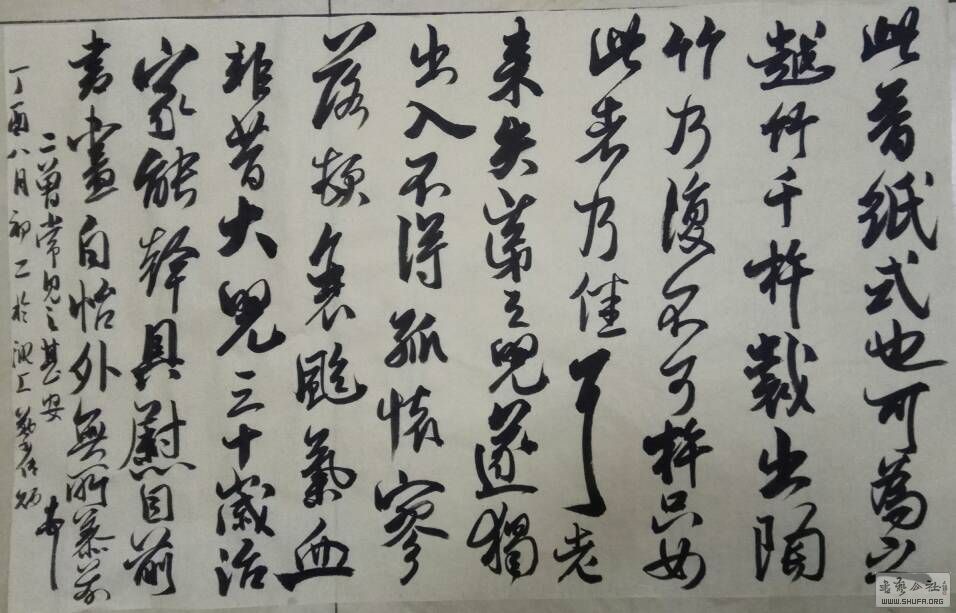 此昔纸式也可為之
越竹千杵裁出陶
竹乃復不可杵只如
此者乃佳耳老
来失第三兒遂獨
出入不得孤懷寥
落頓衰颱氣血
非昔大兒三十歲治
家能幹具慰目前
書畫自怡外無所慕芾
二曾常見之甚安
丁酉八月初二於
WWW.SHUFA.ORG